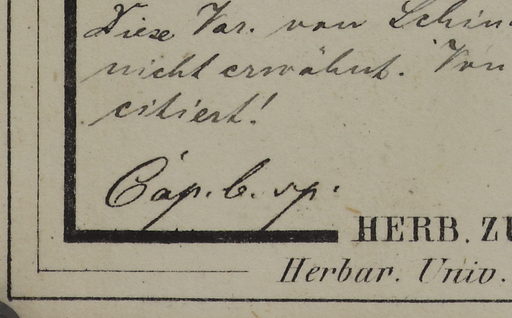 Diese Var. von Schin
nicht erwähnt. Von
citiert!
Cap. b. sp.
HERB. ZU
Herbar. Univ.